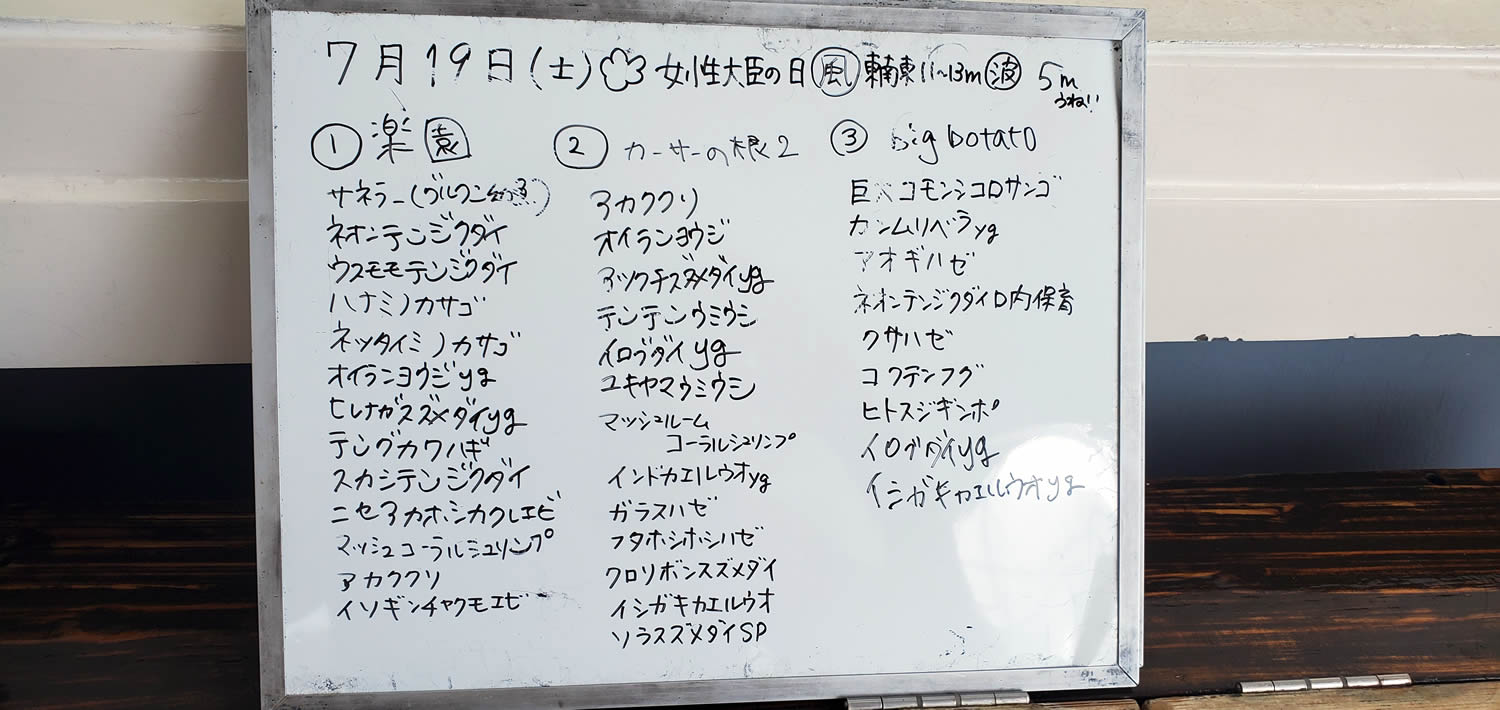 7月19日(土) 女性大臣の日 風 東南東11〜13m 波 5m
うねり!!
① 楽園
サネラー(グルクン幼魚)
ネオンテンジクダイ
ウスモモテンジクダイ
ハナミノカサゴ
ネッタイミノカサゴ
オイランヨウジyg
ヒレナガスズメダイyg
テングカワハギ
スカシテンジクダイ
ニセアカホシカクレエビ
マッシュコーラルシュリンプ
アカククリ
イソギンチャクモエビ
② カーサーの根2
アカククリ
オイランヨウジ
アツクチスズメダイyg
テンテンウミウシ
イロブダイyg
ユキヤマウミウシ
マッシュルーム
コーラルシュリンプ
インドカエルウオyg
ガラスハゼ
フタホシホシハゼ
クロリボンスズメダイ
イシガキカエルウオ
ソラスズメダイSP
③ big potato
巨大コモンシコロサンゴ
カンムリベラyg
アオギハゼ
ネオンテンジクダイ口内保育
クサハゼ
コクテンフグ
ヒトスジギンポ
イロブダイyg
イシガキカエルウオyg